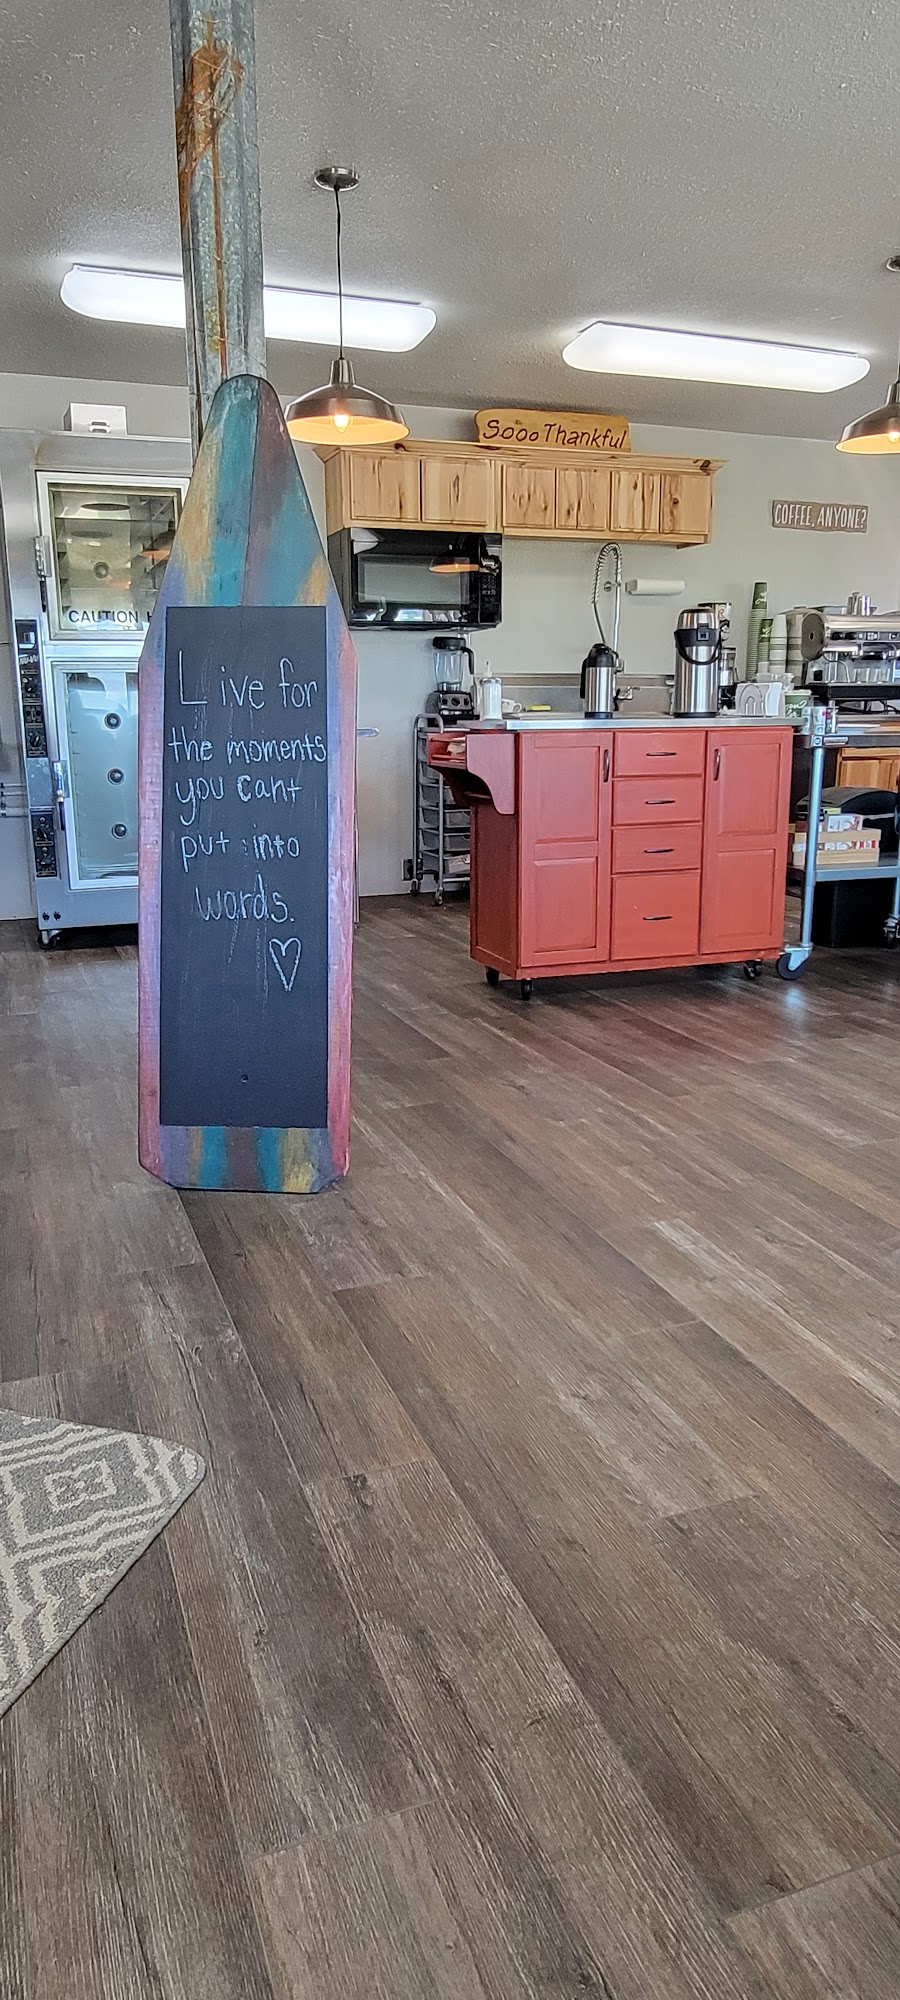 Sooo Thankful
COFFEE, ANYONE?
CAUTION
Live for
the moments
you cant
put into
words.